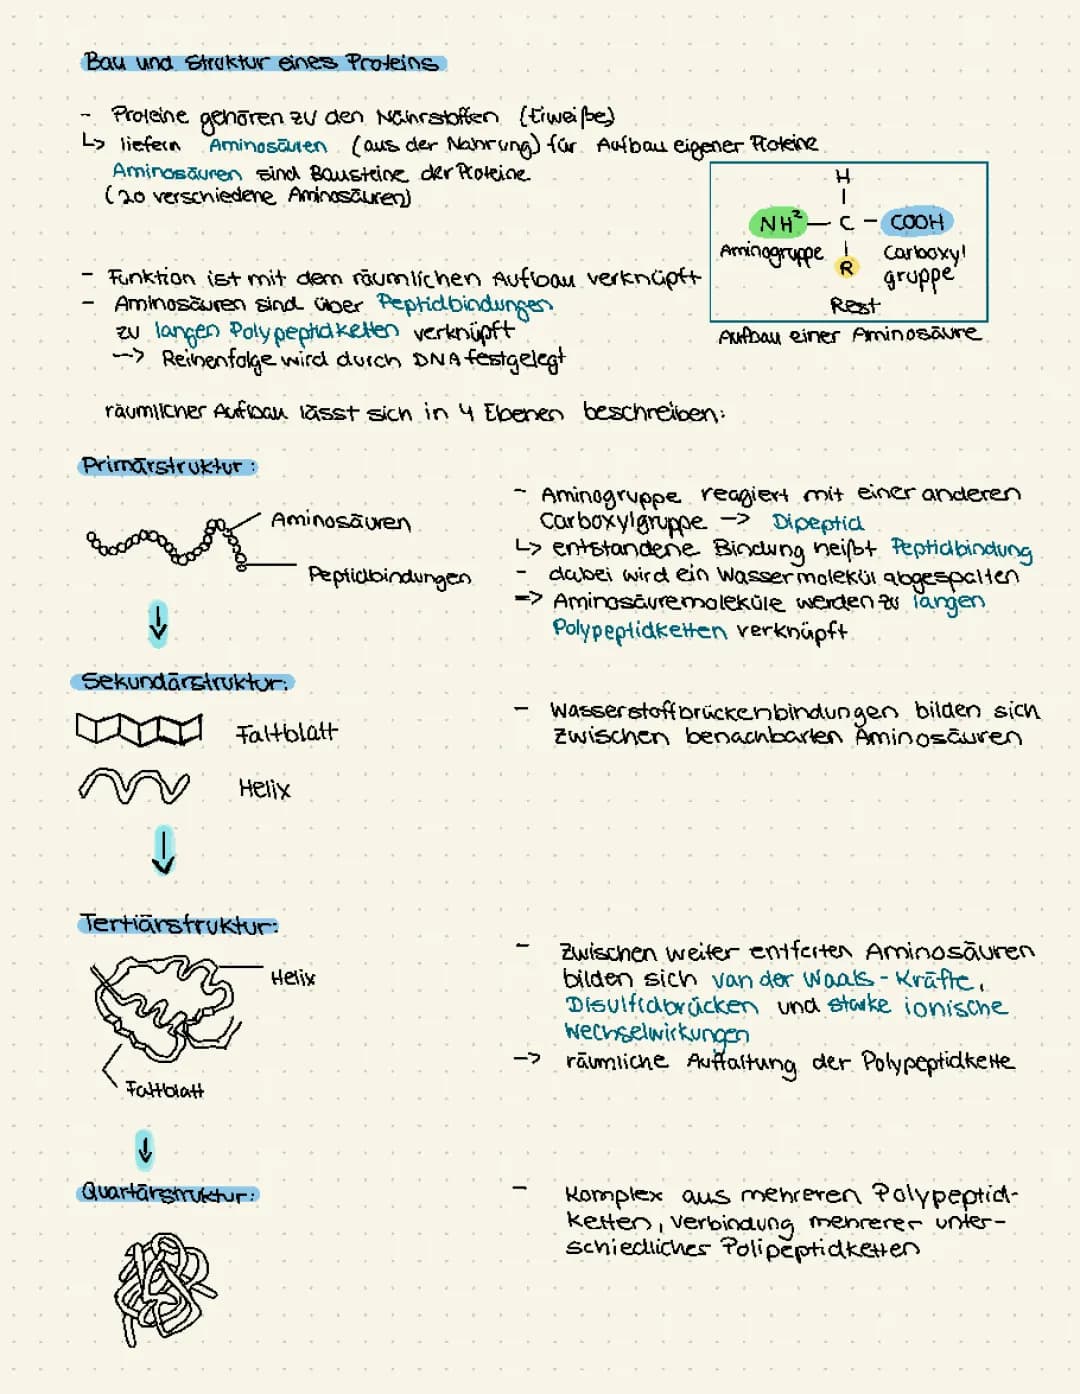 Bau und Struktur eines Proteins
- Proteine gehören zu den Nährstoffen (Eiweiße)
↳ liefern Aminosäuren (aus der Nahrung) für Aufbau eigener Proteine
Aminosäuren sind Bausteine der Proteine
(20 verschiedene Aminosäuren)
H
NH² — C — COOH
Aminogruppe
R
Carboxyl
gruppe
Rest
Aufbau einer Aminosäure
- Funktion ist mit dem räumlichen Aufbau verknüpft
- Aminosäuren sind über Peptidbindungen
zu langen Polypeptidketten verknüpft
--> Reihenfolge wird durch DNA festgelegt
räumlicher Aufbau lässt sich in 4 Ebenen beschreiben:
Primärstruktur:
Aminosäuren
Peptidbindungen
- Aminogruppe reagiert mit einer anderen
Carboxylgruppe --> Dipeptid
↳ entstandene Bindung heißt Peptidbindung
- dabei wird ein Wassermolekül abgespalten
=> Aminosäuremoleküle werden zu langen
Polypeptidketten verknüpft
Sekundärstruktur:
Faltblatt
Helix
- Wasserstoffbrückenbindungen bilden sich
zwischen benachbarten Aminosäuren
Tertiärstruktur:
Helix
Faltblatt
- Zwischen weiter entferten Aminosäuren
bilden sich van der Waals-Kräfte,
Disulfidbrücken und starke ionische
Wechselwirkungen
--> räumliche Auffaltung der Polypeptidkette
Quartärstruktur:
- Komplex aus mehreren Polypeptid-
ketten, Verbindung mehrerer unter-
schiedliches Polipeptidketten